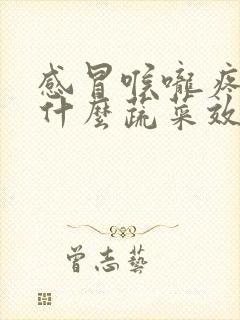 感冒喉嚨疼
什麼蔬菜效
曾志藝